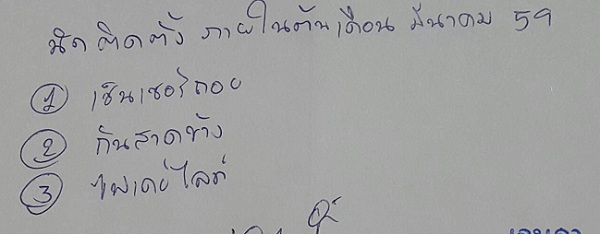 นัดติดตั้ง ภายในต้นเดือน มีนาคม 59
1 เซ็นเซอร์ถอย
2 กันสาดข้าง
3 ไฟเดย์ไลท์